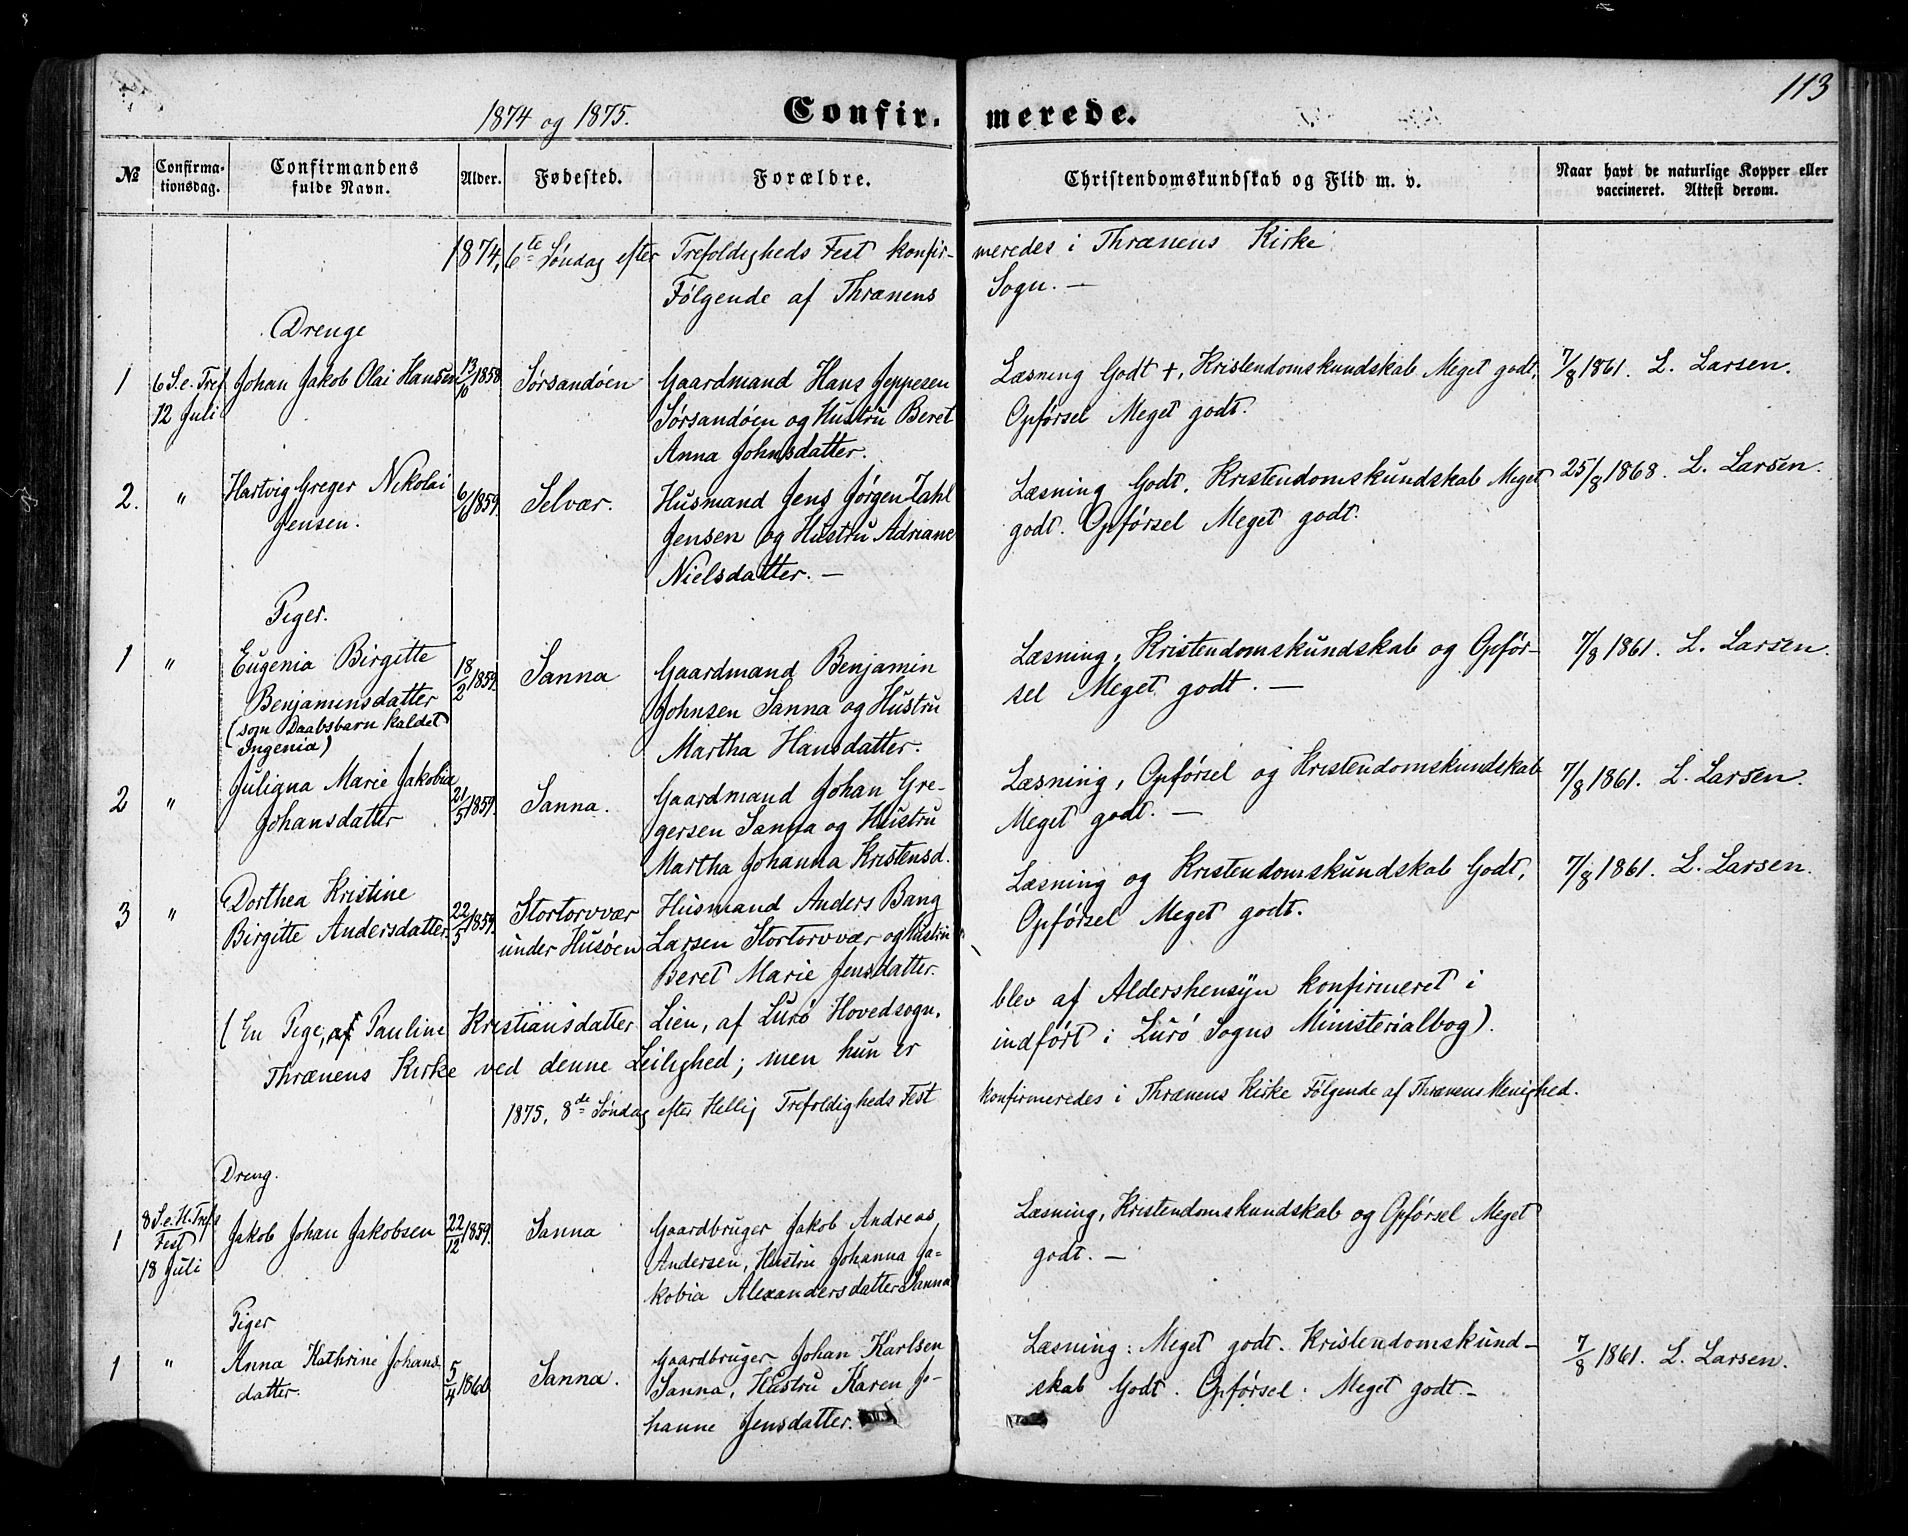 113
1874 og 1875. Confirmerede.
№ Confirmationsdag. Confirmandens fulde Navn. Alder. Fødested. Forældre. Christendomskundskab og Flid m. v. Naar havt de naturlige Kopper eller vaccineret. Attest derom.
1874, 6te Søndag efter Trefoldigheds Fest konfirmeredes i Thrænens Kirke
Følgende af Thrænens Sogn. —
Drenge
1 6 S. e. Tref. Johan Jakob Olai Hansen 13/10 1858. Sørsandøen Gaardmand Hans Jeppesen Læsning Godt +, Kristendomskundskab Meget godt, 7/8 1861. L. Larsen.
12 Juli Sørsandøen og Hustru Beret Opførsel Meget godt.
Anna Johnsdatter.
2. " Hartvig Greger Nikolai 6/6 1859. Selvær. Husmand Jens Jørgen Zahl Læsning Godt. Kristendomskundskab Meget 25/8 1868. L. Larsen.
Jensen. Jensen og Hustru Adriane godt. Opførsel Meget godt.
Nielsdatter. —
Piger.
1 " Eugenia Birgitte 18/2 1859. Sanna Gaardmand Benjamin Læsning, Kristendomskundskab og Opfør- 7/8 1861. L. Larsen.
Benjaminsdatter Johnsen Sanna og Hustru sel Meget godt. —
(som Daabsbarn kaldet Martha Hansdatter.
Ingenia)
2 " Juliana Marie Jakobia 21/5 1859. Sanna. Gaardmand Johan Gre- Læsning, Opførsel og Kristendomskundskab 7/8 1861. L. Larsen.
Johansdatter gersen Sanna og Hustru Meget godt. —
Martha Johanna Kristensd.
3 " Dorthea Kristine 22/5 1859. Stortorvvær Husmand Anders Bang Læsning og Kristendomskundskab Godt, 7/8 1861. L. Larsen.
Birgitte Andersdatter under Husøen Larsen Stortorvvær og Hustru Opførsel Meget godt.
Beret Marie Jensdatter.
(En Pige, af Pauline Kristiansdatter Lien, af Lurø Hovedsogn, blev af Aldershensyn konfirmeret i
Thrænens Kirke ved denne Leilighed; men hun er indført i Lurø Sogns Ministerialbog).
1875, 8de Søndag efter Hellig Trefoldigheds Fest konfirmeredes i Thrænens Kirke Følgende af Thrænens Menighed.
Dreng.
1 8 S. e. H. Tref.s Fest Jakob Johan Jakobsen 22/12 1859. Sanna Gaardbruger Jakob Andreas Læsning, Kristendomskundskab og Opførsel Meget
18 Juli Andersen, Hustru Johanna Ja- godt. —
kobia Alexandersdatter Sanna
Piger
1 " Anna Kathrine Johans- 5/4 1860 Sanna. Gaardbruger Johan Karlsen Læsning: Meget godt. Kristendomskund- 7/8 1861. L. Larsen.
datter. Sanna, Hustru Karen Jo- skab Godt. Opførsel: Meget godt. -
hanne Jensdatter.